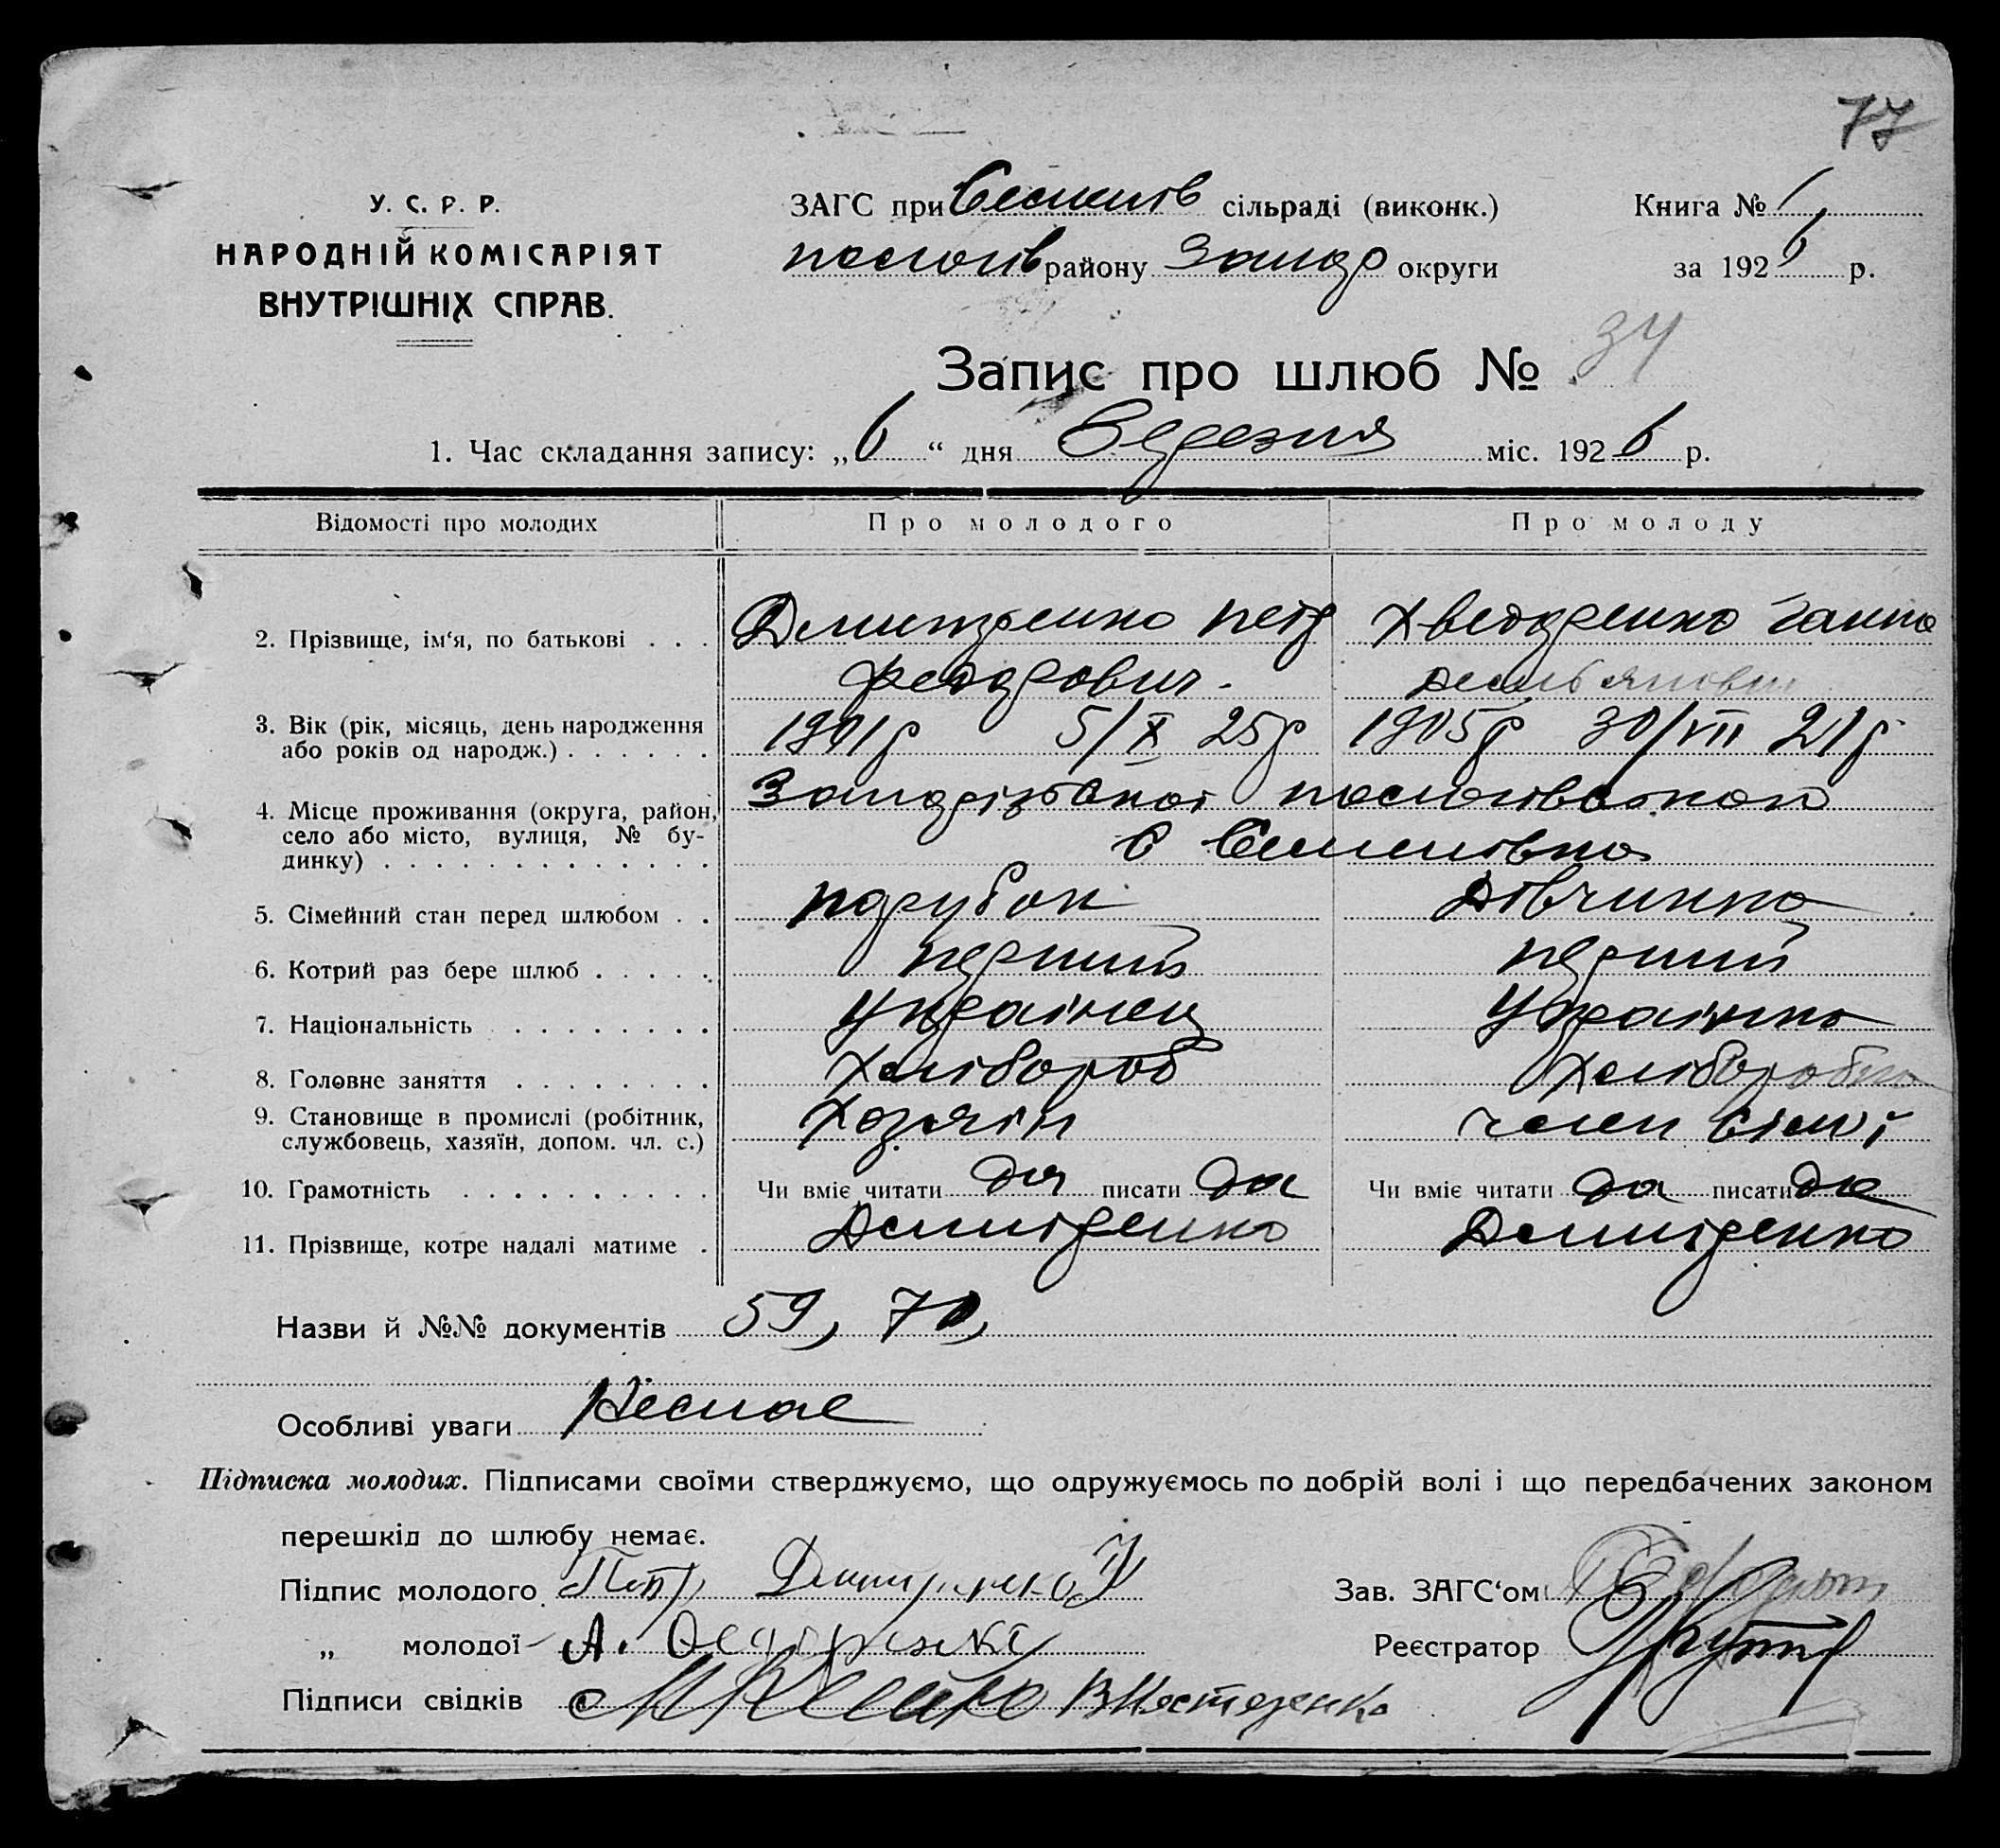 77
У. С. Р. Р.
НАРОДНІЙ КОМІСАРІЯТ
ВНУТРІШНІХ СПРАВ.
ЗАГС при Семенів сільраді (виконк.)
пологів району Запор округи
Книга № 1
за 1926 р.
Запис про шлюб № 34
1. Час складання запису: „6“ дня Березня міс. 1926 р.
Відомості про молодих Про молодого Про молоду
2. Прізвище, ім‘я, по батькові . . . Дмитренко Петр Хведоренко Ганна
Феодрович.
3. Вік (рік, місяць, день народження
або років од народж.) . . . . . . 1901р 5/X 25р 1905р 30/VII 21р
4. Місце проживання (округа, район,
село або місто, вулиця, № бу-
динку) . . . . . . . . . . . . .
с Семенівка
5. Сімейний стан перед шлюбом . . парубок Дівчина
6. Котрий раз бере шлюб . . . . . перший перший
7. Національність . . . . . . . . Українец Українка
8. Головне заняття . . . . . . . . Хлібороб Хліборобка
9. Становище в промислі (робітник,
службовець, хазяїн, допом. чл. с.) Хозяін член сімї
10. Грамотність . . . . . . . . . . Чи вміє читати да писати да Чи вміє читати да писати да
11. Прізвище, котре надалі матиме . Дмитренко Дмитренко
Назви й №№ документів 59, 70,
Особливі уваги Немае
Підписка молодих. Підписами своїми стверджуємо, що одружуємось по добрій волі і що передбачених законом
перешкід до шлюбу немає.
Підпис молодого Петр Дмитренко
Зав. ЗАГС‘ом
„ молодої А.
Реєстратор
Підписи свідків В Нестеренко